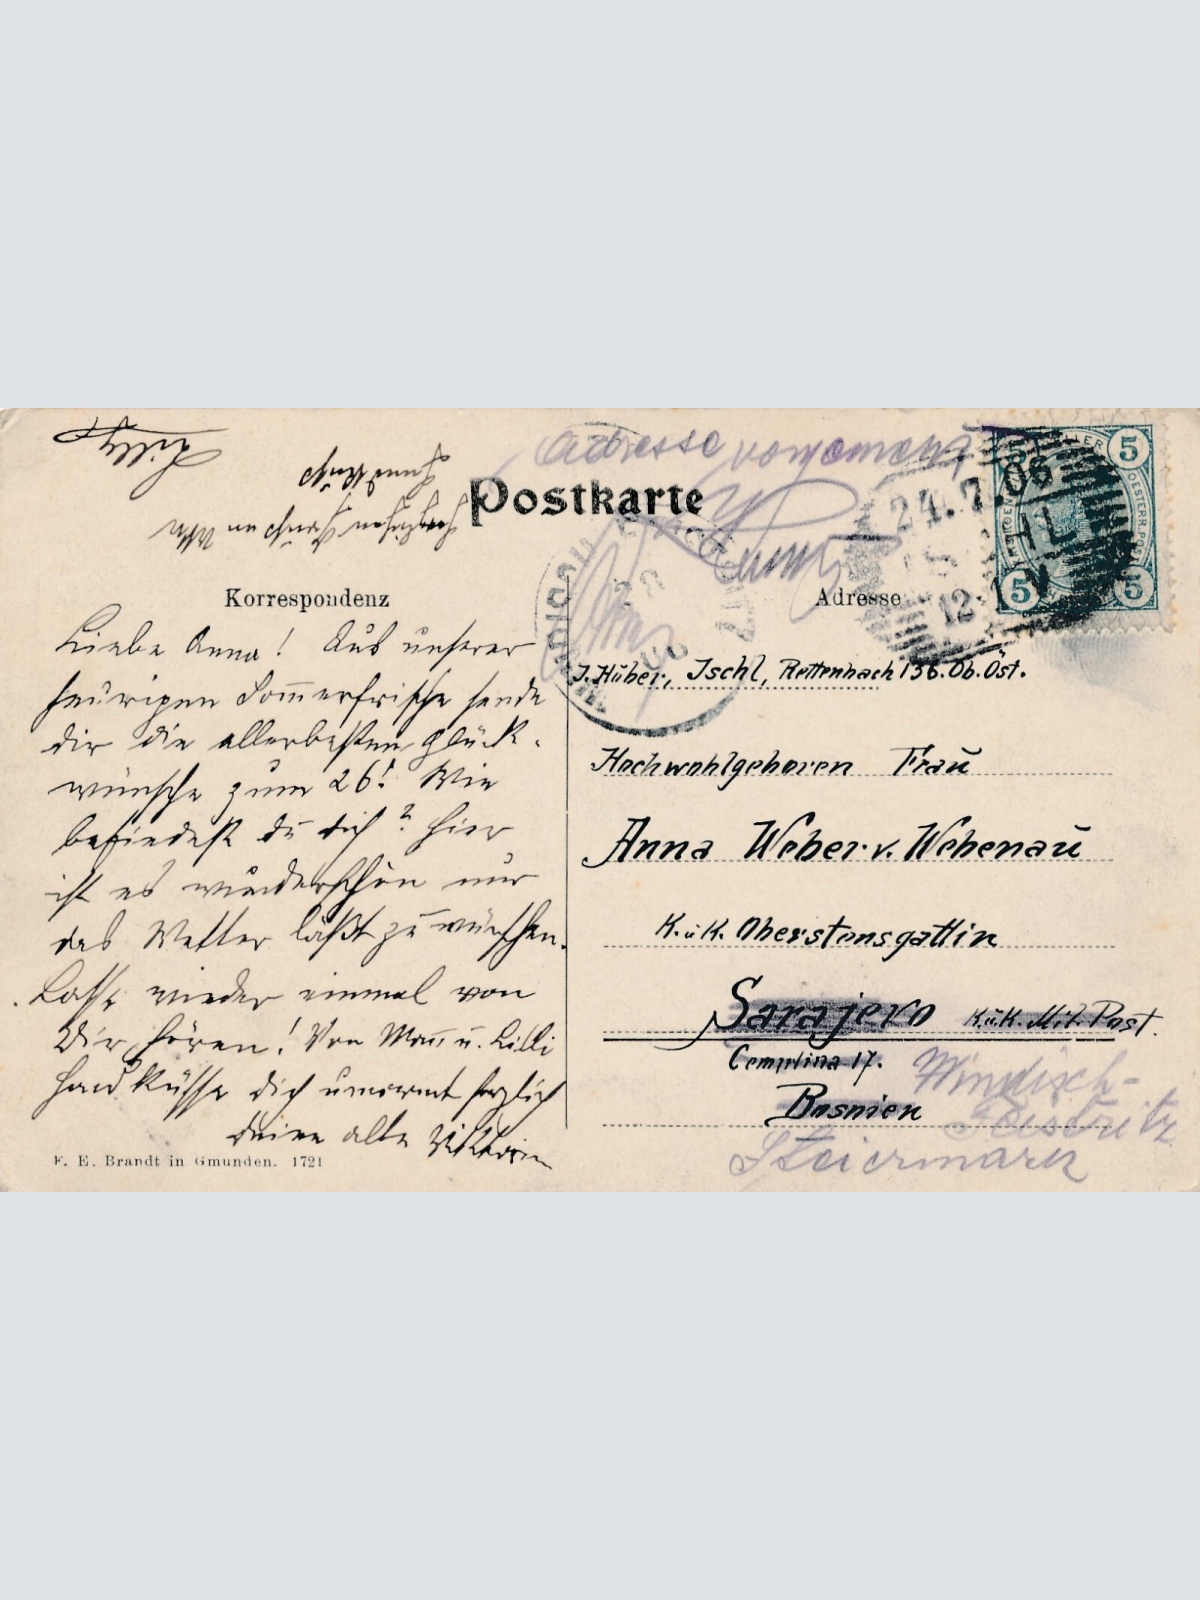 Lilly
Handkuß
herzlichen Gruß an
Postkarte
Adresse
Korrespondenz
Adresse
24.7.06
5
5
5
Liebe Anna! Aus unserer
heurigen Sommerfrische sende
dir die allerbesten Glück-
wünsche zum 26! Wie
befindest du dich? Hier
ist es wunderschön nur
das Wetter läßt zu wünschen.
Lasse wieder einmal von
Dir hören! Von Mama u. Lilli
Handküsse dich umarmt herzlich
deine alte Viktorin
F. E. Brandt in Gmunden. 1721
J. Huber, Ischl, Rettenbach 136. Ob. Öst.
Hochwohlgeboren Frau
Anna Weber v. Webenau
K. u. K. Oberstensgattin
Sarajevo K. u. K. Mil. Post.
Cemalina 17.
Bosnien
Windisch-
Feistritz
Steiermark